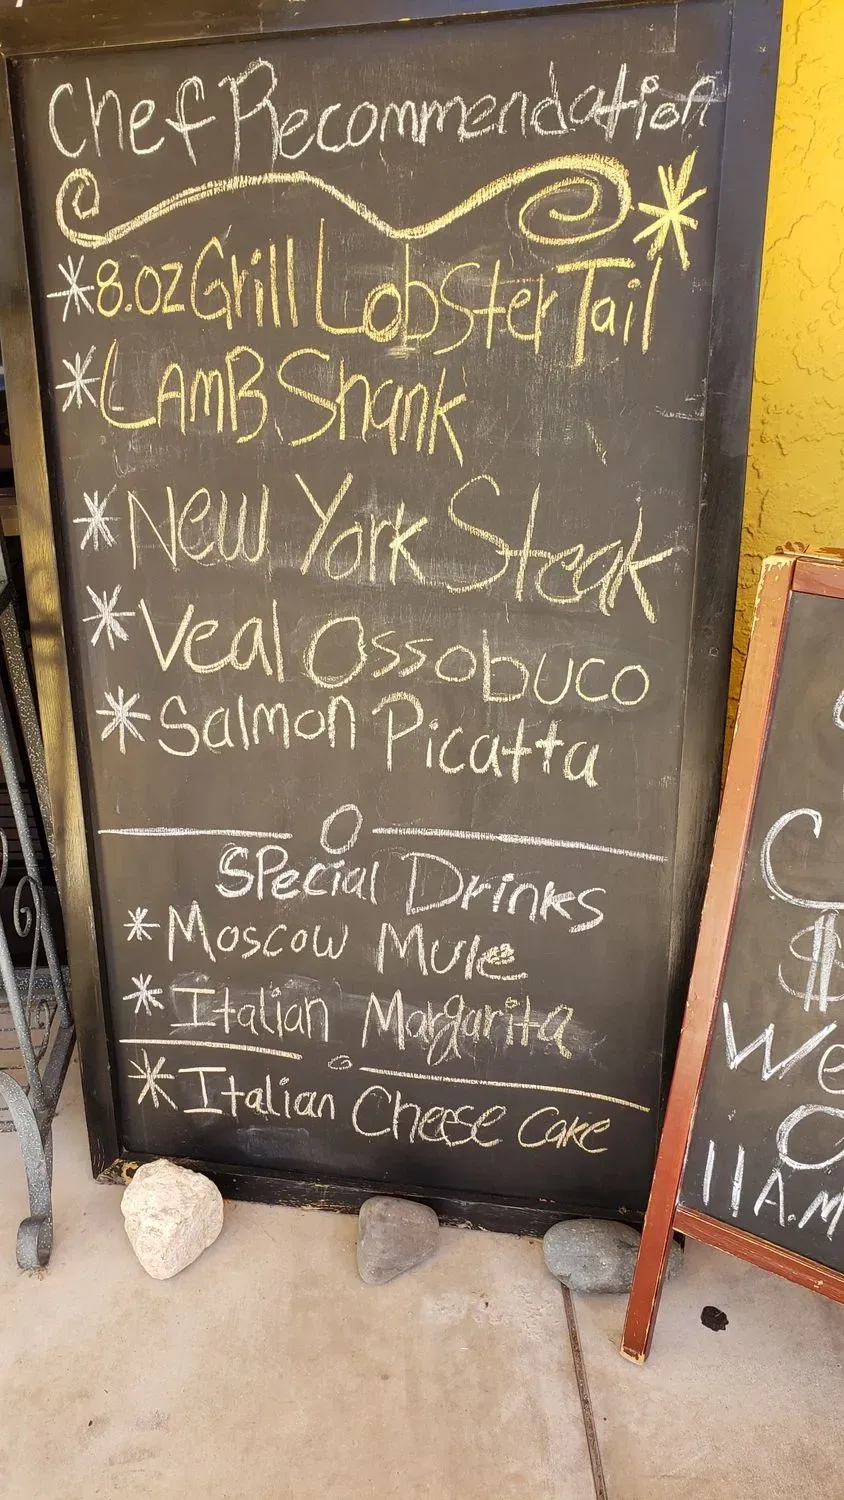 Chef Recommendation
*8.oz Grill Lobster Tail
*Lamb Shank
*New York Steak
*Veal Ossobuco
*Salmon Picatta
Special Drinks
*Moscow Mule
*Italian Margarita
*Italian Cheese Cake
C
$
We
11A.M